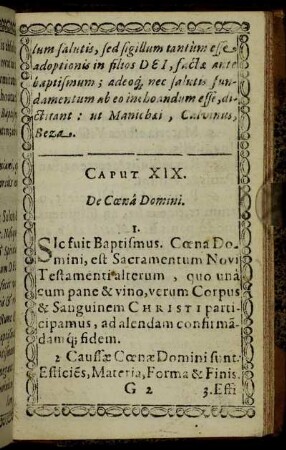 lum salutis, sed sigillum tantùm esse
adoptionis in filios DEI, factæ ante
baptismum; adeoq́, nec salutis fun-
damentum ab eo inchoandum esse, di-
ctitant: ut Manichæi, Calvinus,
Beza.
CAPUT XIX.
De Cœnâ Domini.
1.
SIc fuit Baptismus. Cœna Do-
mini, est Sacramentum Novi
Testamenti alterum, quo unà
cum pane & vino, verum Corpus
& Sanguinem CHRISTI parti-
cipamus, ad alendam confirmā-
damq́; fidem.
2 Caussæ Cœnæ Domini sunt.
Efficiēs, Materia, Forma & Finis.
G 2 3. Effi